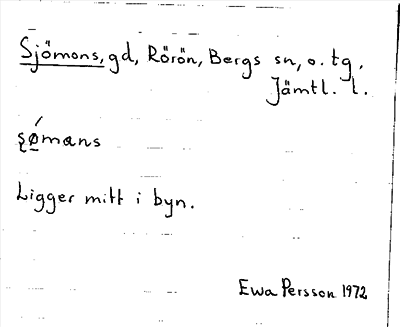 Sjömons, gd, Rörön, Bergs sn, o. tg.
Jämtl. l.
ʂǿ̱mans
Ligger mitt i byn.
Ewa Persson 1972